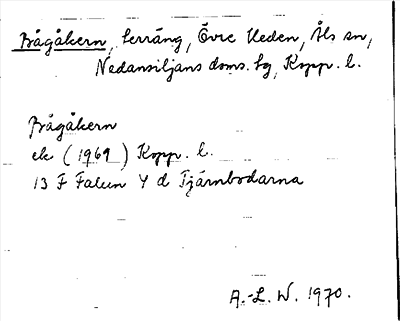 Bågåkern, terräng, Övre Heden, Åls sn,
Nedansiljans doms. hg, Kopp. l.
Bågåkern
ek (1969) Kopp. l.
13 F Falun 4 d Tjärnbodarna
A.-L. W. 1970.